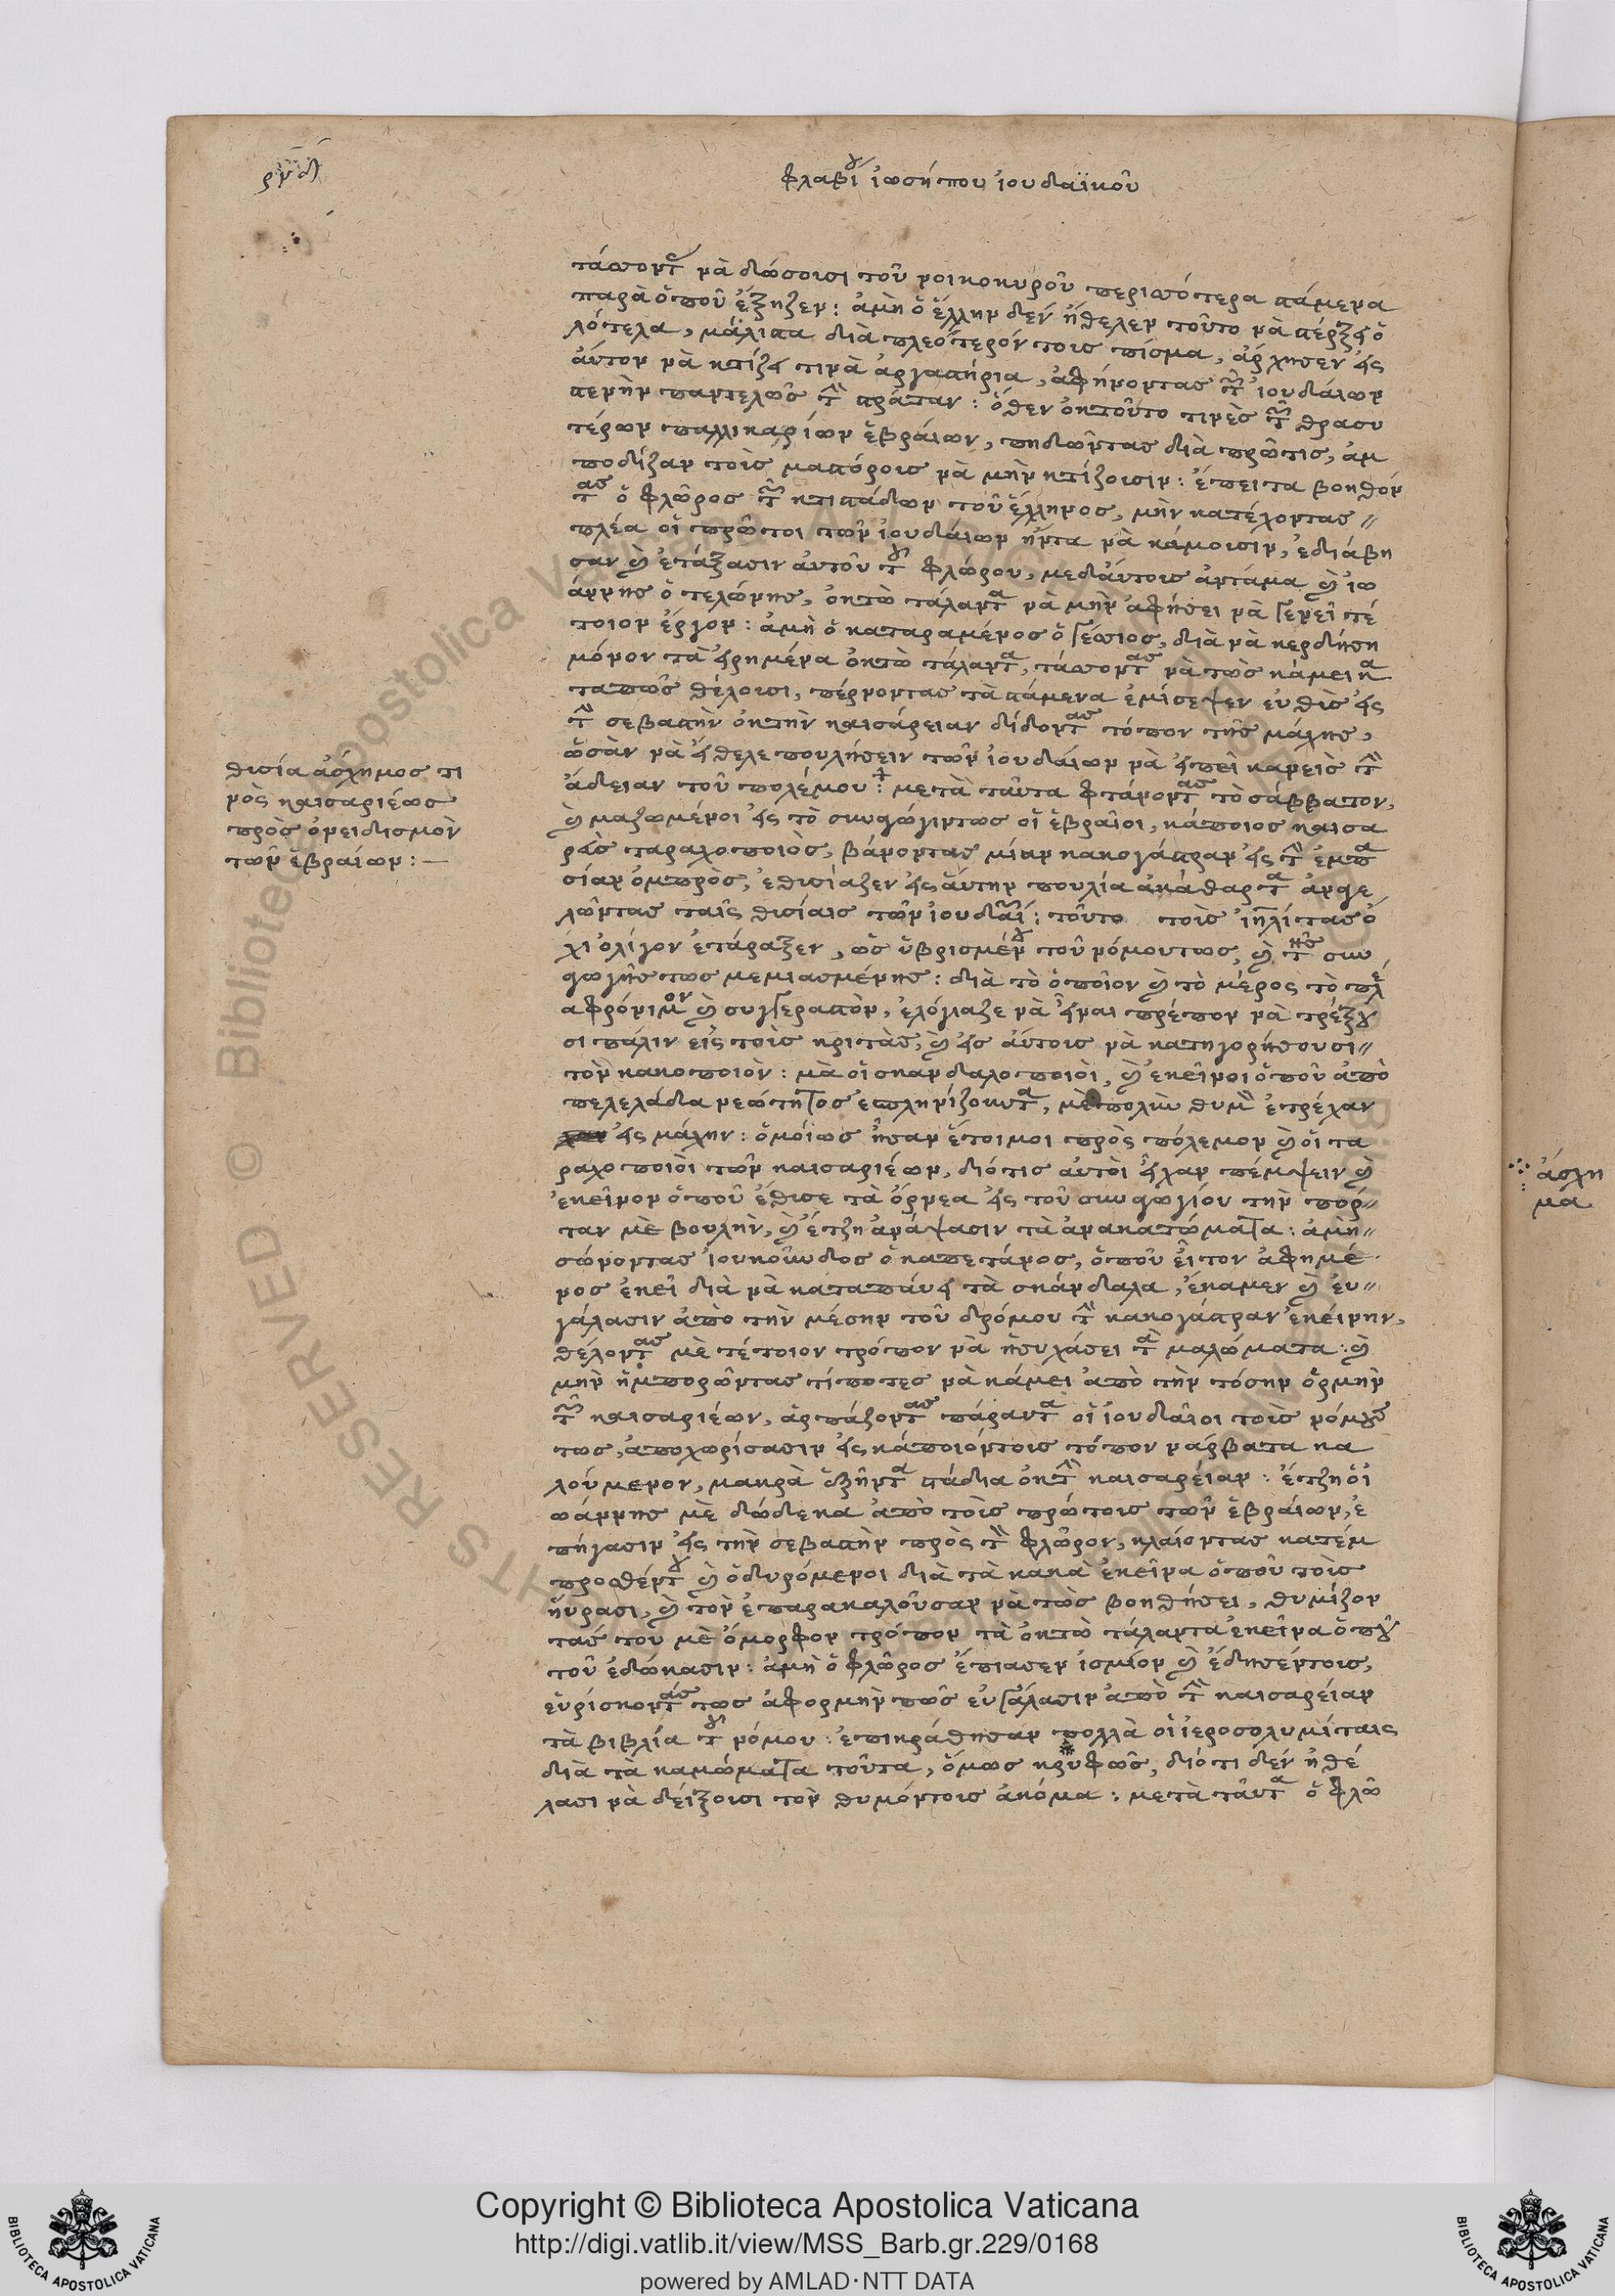 ρνδ
φλαβίου ἰωσήπου ἰουδαϊκοῦ
τάσοντας νὰ δώσουσι τοῦ νοικοκυροῦ περισσότερα στάμενα
παρὰ ὁποῦ ἔξηζεν: ἀμὴ ὁ ἕλλην δὲν ἤθελεν τοῦτο νὰ στέρξει ὁ
λότελα, μάλιστα διὰ πλεότερόν τοις πίσμα, ἄρχησεν εἰς
αὐτον νὰ κτίζει τινὰ ἀργαστήρια, ἀφήνοντας τῶν ἰουδαίων
στενὴν παντελῶς τὴν στράταν: ὅθεν ὀκτοῦτο τινὲς τῶν θρασυ
τέρων παλλικαρίων ἑβραίων, πηδῶντας διὰ πρῶτις, ἀμ
ποδίζαν τοὶς μαστόροις νὰ μὴν κτίζοισιν: ἔπειτα βοηθόν
τας ὁ φλῶρος τῶν κτιστάδων τοῦ ἕλληνος, μὴν κατέχοντας
πλέα οἱ πρῶτοι τῶν ἰουδαίων ἤντα νὰ κάμοισιν, ἐδιάβη
σαν καὶ ἐτάξασιν αὐτοῦ τοῦ φλώρου, μεδαύτοις ἀντάμα καὶ ἰω
άννης ὁ τελώνης, ὀκτὼ τάλαντα νὰ μὴν ἀφήσει νὰ γενεῖ τέ
τοιον ἔργον: ἀμὴ ὁ καταραμένος ὁ γέσιος, διὰ νὰ κερδήση
μόνον τὰ εἰρημένα ὀκτὼ τάλαντα, τάσοντας νὰ τῶς κάμει κα
ταπῶς θέλοισι, πέρνοντας τὰ στάμενα ἐμίσεψεν εὐθὶς εἰς
τὴν σεβαστὴν ὀκτὴν καισάρειαν δίδοντας τόπον τῆς μάχης,
ὡσὰν νὰ εἴθελε πουλήσειν τῶν ἰουδαίων νὰ εἰπεῖ κανεὶς τὴν
ἄδειαν τοῦ πολέμου: μετὰ ταῦτα φτάνοντας τὸ σάββατον,
καὶ μαζωμένοι εἰς τὸ συναγώγιντως οἱ ἑβραῖοι, κάποιος καισα
ρεὺς ταραχοποιὸς, βάνοντας μίαν κακογάστραν εἰς τὴν ἐμπα
σίαν ὀμπρὸς, ἐθισίαζεν εἰς αὔτην πουλία ἀκάθαρτα ἀνγε
λῶντας ταῖς θισίαις τῶν ἰουδαίων: τοῦτο τοὶς ἰηλίτας ὀ
χὶ ὀλίγον ἐτάραξεν, ὡς ὑβρισμένου τοῦ νόμουτως, καὶ τῆς συνα
γωγῆς τως μεμιασμένης: διὰ τὸ ὁποῖον καὶ τὸ μέρος τὸ πλέ
α φρόνιμον καὶ συγγεραστὸν, ἐλόγιαζε νὰ εἶναι πρέπον νὰ τρέξου
σι πάλιν εἰς τοὶς κριτὰς, καὶ εἰς αὔτοις νὰ κατηγορήσουσι
τὸν κακοποιὸν: μὰ οἱ σκανδαλοποιοὶ, καὶ ἐκεῖνοι ὁποῦ ἀπὸ
πελελάδα νεότητος ἐστηρίζουντα, μὲ πολὺν θυμὸν ἐτρέχαν
εἰς μάχην: ὁμοίως ἦσαν ἕτοιμοι πρὸς πόλεμον καὶ οἱ τα
ραχοποιοὶ τῶν καισαριέων, διότις αὐτοὶ εἶχαν πέμψειν καὶ
ἐκεῖνον ὁποῦ ἔθισε τὰ ὄρνεα εἰς τοῦ συναγωγίου τὴν πόρ
ταν μὲ βουλὴν, καὶ ἔτζη ἀνάψασιν τὰ ἀνακατώματα: ἀμὴ
σώνοντας ἰουκοῦνδος ὁ καπετάνος, ὁποῦ εἶτον ἀφημέ
νος ἐκεῖ διὰ νὰ καταπάυει τὰ σκάνδαλα, ἔκαμεν καὶ εὐ
γάλασιν ἀπὸ τὴν μέσην τοῦ δρόμου τὴν κακογάστραν ἐκείνην,
θέλοντας μὲ τέτοιον τρόπον νὰ ἡσυχάσει τὰ μαλώματα: καὶ
μὴν ἠμπορῶντας τίποτες νὰ κάμει ἀπὸ τὴν τόσην ὁρμὴν
τῶν καισαριέων, ἁρπάζοντας πάραντα οἱ ἰουδαῖοι τοὶς νόμους
τως, ἀποχωρίσασιν εἰς κάποιόντοις τόπον νάρβατα κα
λούμενον, μακρὰ ὁξῆντα στάδια ὀκτὴν καισαρείαν: ἔτζη ὁ ἰ
ωάννης μὲ δώδεκα ἀπὸ τοὶς πρώτοις τῶν ἑβραίων, ἐ
πήγασιν εἰς τὴν σεβαστὴν πρὸς τὸν φλῶρον, κλαίοντας κατέμ
προσθέντου καὶ ὀδυρόμενοι διὰ τὰ κακὰ ἐκεῖνα ὁποῦ τοὶς
ηὕρασι, καὶ τὸν ἐπαρακαλοῦσαν νὰ τῶς βοηθήσει, θυμίζον
τάς του μὲ ὄμορφον τρόπον τὰ ὀκτὼ τάλαντα ἐκεῖνα ὁποῦ
τοῦ ἐδώκασιν: ἀμὴ ὁ φλῶρος ἔπιασεν ἰσμίον καὶ ἔδησέντοις,
εὑρίσκοντάς τως ἀφορμὴν πῶς εὐγάλασιν ἀπὸ τὴν καισαρείαν
τὰ βιβλία τοῦ νόμου: ἐπικράθησαν πολλὰ οἱ ἱεροσολυμίταις
διὰ τὰ καμώματα τοῦτα, ὅμως κρυφῶς, διότι δὲν ἠθέ
λασι νὰ δείξοισι τὸν θυμόντοις ἀκόμα: μετὰ ταῦτα ὁ φλῶ
θισία ἀσχημος τι
νὸς καισαριέως
πρὸς ὀνειδισμὸν
τῶν ἑβραίων:
ἀσχη
μα
Copyright © Biblioteca Apostolica Vaticana
http://digi.vatlib.it/view/MSS_Barb.gr.229/0168
powered by AMLAD·NTT DATA
BIBLIOTECA APOSTOLICA VATICANA
BIBLIOTECA APOSTOLICA VATICANA